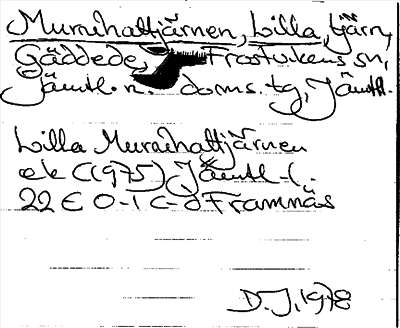 Murrihattjärnen, Lilla, tjärn,
Gäddede, Frostvikens sn,
Jämtl. n. doms. tg, Jämtl.
Lilla Murrihattjärnen
ek (1975) Jämtl l.
22 E 0-1 c-d Framnäs
D.J. 1978